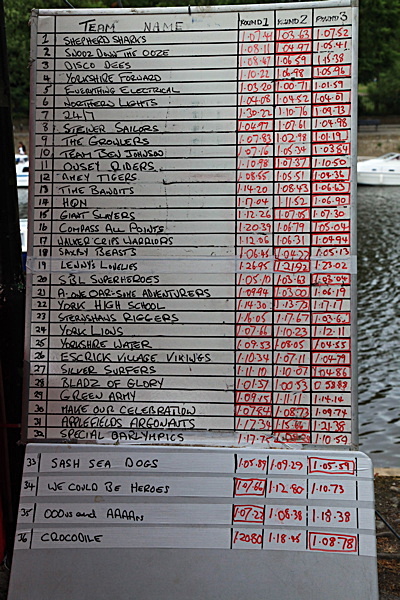 TEAM NAME ROUND 1 ROUND 2 ROUND 3
1 SHEPHERD SHARKS 1:07.44 1:03.43 1:07.52
2 SNOOZ DOWN THE OOZE 1:08.11 1:04.97 1:05.41
3 DISCO DEES 1:08.47 1:06.59 1:15.38
4 YORKSHIRE FORWARD 1:10.22 1:06.98 1:05.96
5 EVERYTHING ELECTRICAL 1:03.20 1:00.71 1:01.59
6 NORTHERN LIGHTS 1:04.08 1:04.52 1:04.01
7 24/7 1:30.22 1:10.76 1:09.73
8 STEINER SAILORS 1:04.97 1:07.61 1:04.98
9 THE GROWLERS 1:07.83 1:02.98 1:01.19
10 TEAM BEN JOHNSON 1:07.16 1:05.34 1:03.84
11 OUSET RIDERS 1:10.98 1:07.37 1:10.50
12 AMEY TIGERS 1:08.55 1:05.51 1:04.36
13 TIME BANDITS 1:14.20 1:08.43 1:06.63
14 HQN 1:17.04 1:11.52 1:06.90
15 GIANT SLAYERS 1:12.26 1:07.05 1:07.30
16 COMPASS ALL POINTS 1:20.39 1:06.79 1:05.04
17 WALKER CRIPS WARRIORS 1:12.06 1:06.31 1:04.94
18 SAXBY BEASTS 1:06.45 1:04.22 1:05.13
19 LENNY'S LOVELIES 1:26.95 1:21.92 1:23.02
20 SBL SUPERHEROES 1:05.10 1:03.63
21 A-ONE OAR-SOME ADVENTURERS 1:09.94 1:03.00 1:06.19
22 YORK HIGH SCHOOL 1:14.30 1:13.73 1:17.17
23 STERNSHAWS RIGGERS 1:16.05 1:17.67
24 YORK LIONS 1:07.66 1:10.23 1:12.11
25 YORKSHIRE WATER 1:09.53 1:08.05 1:04.55
26 ESCRICK VILLAGE VIKINGS 1:10.34 1:07.11 1:04.79
27 SILVER SURFERS 1:11.10 1:10.07 1:04.86
28 BLADZ OF GLORY 1:01.37 1:00.53 0:58.88
29 GREEN ARMY 1:09.15 1:11.11 1:14.14
30 MAKE OUR CELEBRATION 1:07.84 1:08.73 1:09.74
31 APPLEFIELDS ARGONAUTS 1:17.34 1:21.38
32 SPECIAL BARLYMPICS 1:10.59
33 SASH SEA DOGS 1:05.89 1:09.29 1:05.59
34 WE COULD BE HEROES 1:12.80 1:10.73
35 OOOHS and AAAAHS 1:07.22 1:08.38 1:18.38
36 CROCODILE 1:20.80 1:18.45 1:08.78